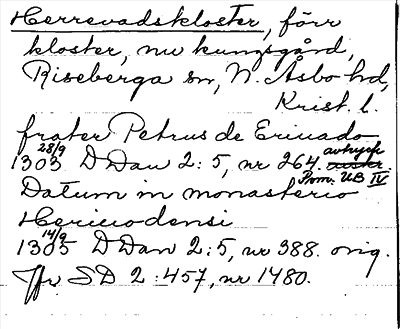 Herrevadskloster, förr
kloster, nu kungsgård,
Riseberga sn, N. Åsbo hd,
Krist. l.
frater Petrus de Eriuado
1303 28/9 D Dan 2:5, nr 264. avtryck
Pom. UB IV
Datum in monasterio
Heriuodensi
1305 14/9 D Dan 2:5, nr 388. orig.
Jfr SD 2:457, nr 1480.